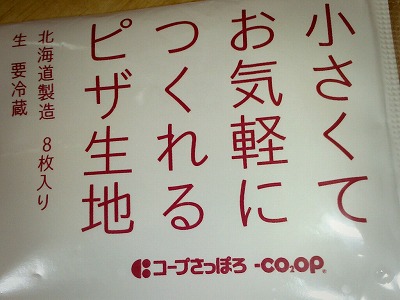 小さくて
お気軽に
つくれる
ピザ生地
北海道製造 8枚入り
生 要冷蔵
コープさっぽろ -CO2OP®